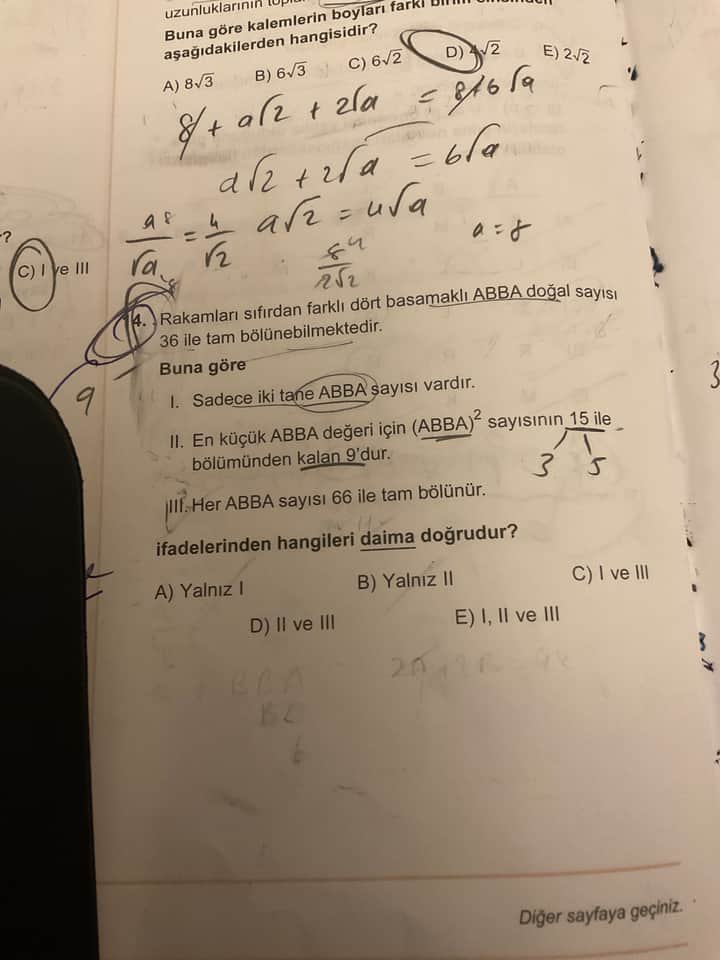 uzunluklarının
Buna göre kalemlerin boyları farkı
aşağıdakilerden hangisidir?
A) 8√3 B) 6√3 C) 6√2 D) 4√2 E) 2√2
8 + a√2 + 2√a = 8+6√a
a√2 + 2√a = 6√a
a/√a = 4/√2 a√2 = 4√a a = 8
8
8 4
2√2
?
C) I ve III
4. Rakamları sıfırdan farklı dört basamaklı ABBA doğal sayısı
36 ile tam bölünebilmektedir.
Buna göre
9
I. Sadece iki tane ABBA sayısı vardır.
II. En küçük ABBA değeri için (ABBA)² sayısının 15 ile
bölümünden kalan 9'dur.
3 5
III. Her ABBA sayısı 66 ile tam bölünür.
ifadelerinden hangileri daima doğrudur?
A) Yalnız I B) Yalnız II C) I ve III
D) II ve III E) I, II ve III
Diğer sayfaya geçiniz.